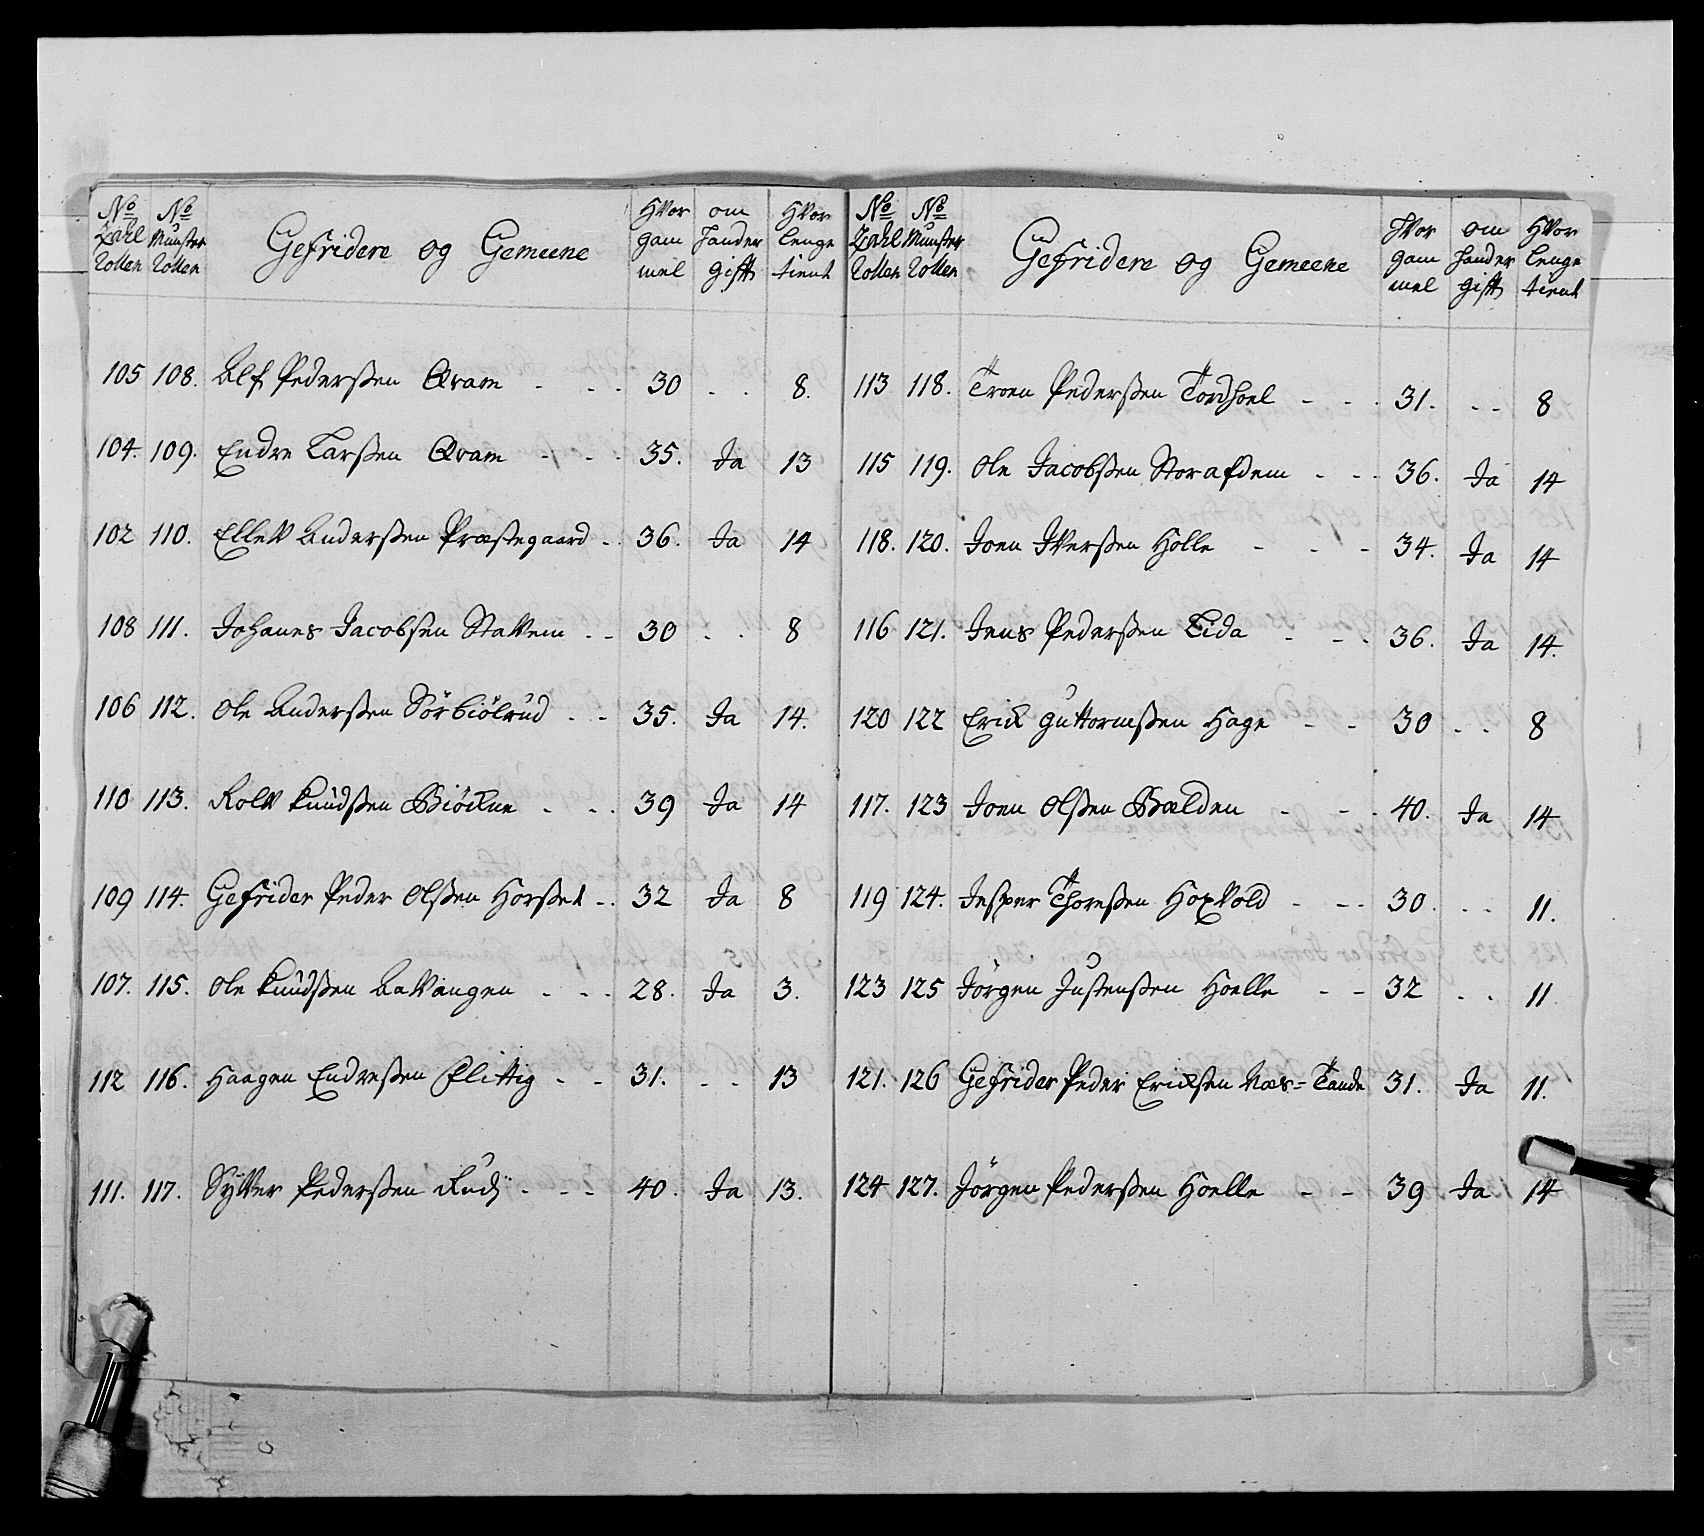 No Zahl Rollen | No Munster Rollen | Gefridere og Gemeene | Hvor gammel | om hand er gifft | Hvor lenge tient
105 108. Alf Pederßen Qvam - - - 30 - - 8.
104. 109. Endre Larßen Qvam - - - 35. Ja 13
102 110. Ellev Anderßen Præstegaard - - 36. Ja 14
108 111. Johanes Jacobsen Stavem - - 30 - - 8
106 112. Ole Anderßen Sörbiölrud - - 35. Ja 14.
110 113. Rolv Knudßen Biöckne - - - 39 Ja 14
109 114. Gefrider Peder Olßen Horßet - - 32 Ja 8
107. 115. Ole Knudßen Bavangen - - - 28. Ja 3.
112 116. Haagen Endreßen Plittig - - 31. - - 13
111. 117. Syver Pederßen Rudj - - - 40. Ja 13.
No Zahl Rollen | No Munster Rollen | Gefridere og Gemeene | Hvor gammel | om hand er gifft | Hvor lenge tient
113 118. Troen Pederßen Tordhoel - - - 31. - - 8
115 119. Ole Jacobßen Storafdem - - - 36. Ja 14
118. 120. Joen Iverßen Holle - - - 34. Ja 14
116 121. Jens Pederßen Lida - - - 36. Ja 14.
120 122 Erick Guttormßen Hage - - 30 - - 8
117. 123 Joen Olßen Bælden - - - 40. Ja 14
119 124. Jesper Thoreßen Hoxvold - - - 30. - - 11.
123 125 Jörgen Justenßen Hoelle - - 32 - - 11
121. 126 Gefrider Peder Ericksen Næs=Tande 31. Ja 11.
124 127. Jörgen Pederßen Hoelle - - 39 Ja 14